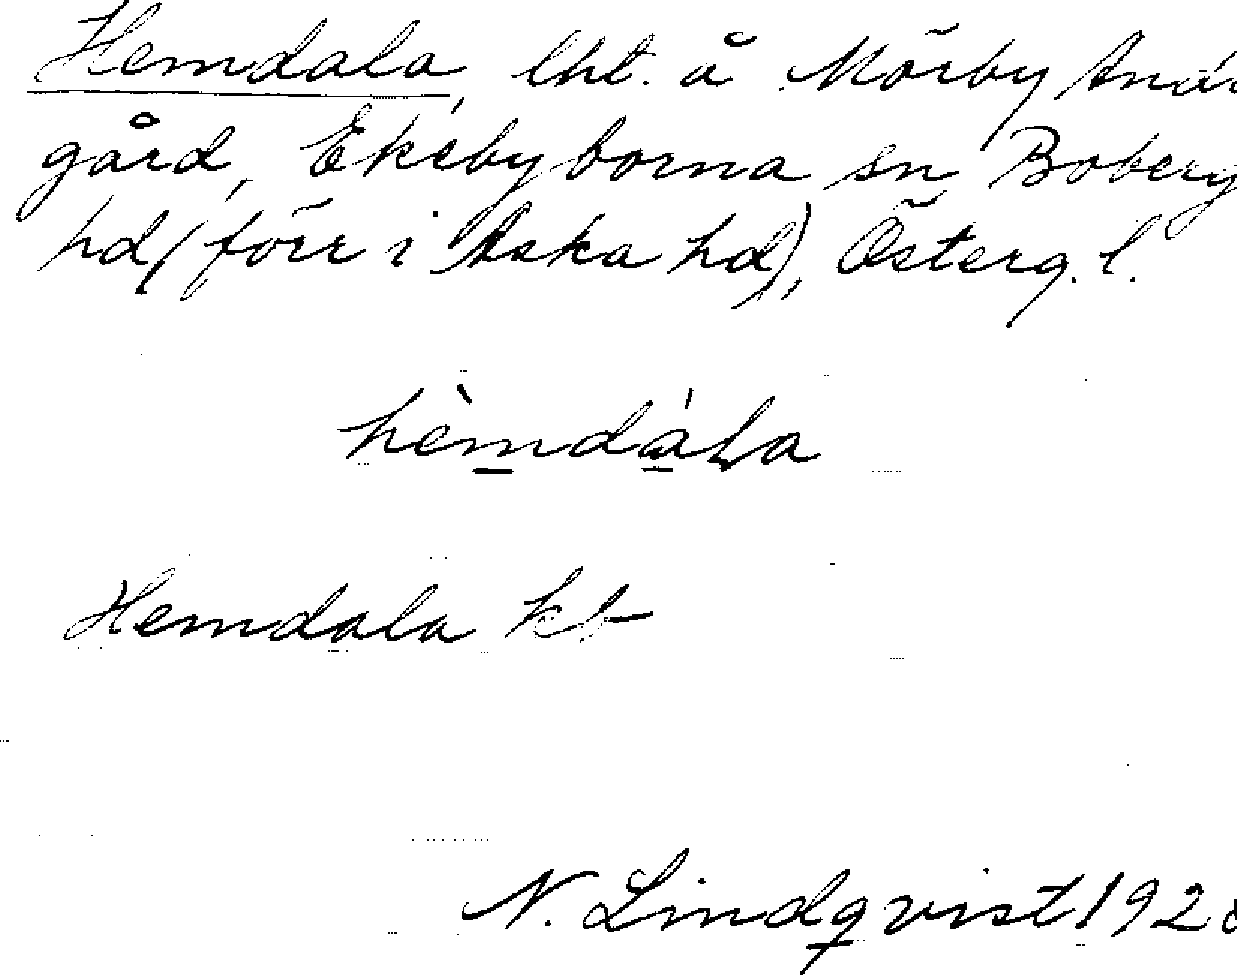 Hemdala, lht. å Mörby
gård, Ekebyborna sn Boberg
hd (förr i Aska hd), Österg. l.
hèmdáLa
Hemdala kb
N. Lindqvist 192